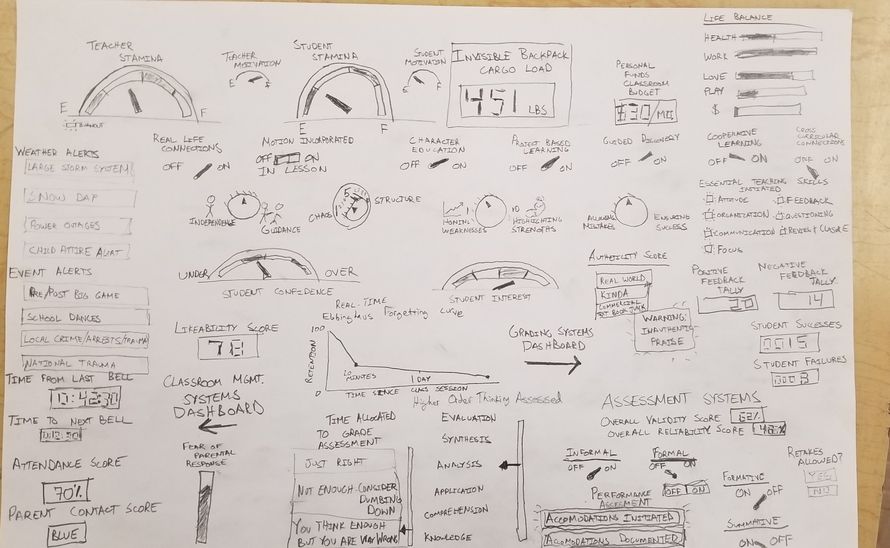 LIFE BALANCE
HEALTH
WORK
LOVE
PLAY
$
TEACHER
STAMINA
E
F
BURNOUT
TEACHER
MOTIVATION
E
F
STUDENT
STAMINA
E
F
STUDENT
MOTIVATION
E
F
INVISIBLE BACKPACK
CARGO LOAD
451 LBS
PERSONAL
FUNDS
CLASSROOM
BUDGET
$30/MO
WEATHER ALERTS
LARGE STORM SYSTEM
SNOW DAY
POWER OUTAGES
CHILD ATTIRE ALERT
REAL LIFE
CONNECTIONS
OFF ON
MOTION INCORPORATED
OFF ON
IN LESSON
CHARACTER
EDUCATION
OFF ON
PROJECT BASED
LEARNING
OFF ON
GUIDED DISCOVERY
OFF ON
COOPERATIVE
LEARNING
OFF ON
CROSS
CURRICULAR
CONNECTIONS
OFF ON
INDEPENDENCE
GUIDANCE
CHAOS
STRUCTURE
HONING
WEAKNESSES
HIGHLIGHTING
STRENGTHS
ALLOWING
MISTAKES
ENSURING
SUCCESS
ESSENTIAL TEACHING SKILLS
INITIATED
ATTITUDE
FEEDBACK
ORGANIZATION
QUESTIONING
COMMUNICATION
REVIEW & CLOSURE
FOCUS
EVENT ALERTS
PRE/POST BIG GAME
SCHOOL DANCES
LOCAL CRIME/ARRESTS/TRAUMA
NATIONAL TRAUMA
UNDER
OVER
STUDENT CONFIDENCE
STUDENT INTEREST
AUTHETICITY SCORE
REAL WORLD
KINDA
COMMERCIAL
WARNING:
INAUTHENTIC
PRAISE
POSITIVE
FEEDBACK
TALLY
20
NEGATIVE
FEEDBACK
TALLY
14
STUDENT SUCCESSES
0015
STUDENT FAILURES
0003
LIKEABILITY SCORE
78
REAL-TIME
Ebbinghaus Forgetting Curve
100
RETENTION
0
20
MINUTES
1 DAY
TIME SINCE CLASS SESSION
GRADING SYSTEMS
DASHBOARD
TIME FROM LAST BELL
10:42:30
TIME TO NEXT BELL
CLASSROOM MGMT.
SYSTEMS
DASHBOARD
ATTENDANCE SCORE
70%
PARENT CONTACT SCORE
BLUE
FEAR OF
PARENTAL
RESPONSE
TIME ALLOCATED
TO GRADE
ASSESSMENT
JUST RIGHT
NOT ENOUGH-CONSIDER
DUMBING
DOWN
YOU THINK ENOUGH
BUT YOU ARE VERY WRONG
Higher Order Thinking Assessed
EVALUATION
SYNTHESIS
ANALYSIS
APPLICATION
COMPREHENSION
KNOWLEDGE
ASSESSMENT SYSTEMS
OVERALL VALIDITY SCORE 62%
OVERALL RELIABILITY SCORE
INFORMAL
OFF ON
FORMAL
OFF ON
PERFORMANCE
ASSESSMENT
OFF ON
ACCOMODATIONS INITIATED
ACCOMODATIONS DOCUMENTED
FORMATIVE
ON OFF
SUMMATIVE
ON OFF
RETAKES
ALLOWED?
YES
NO